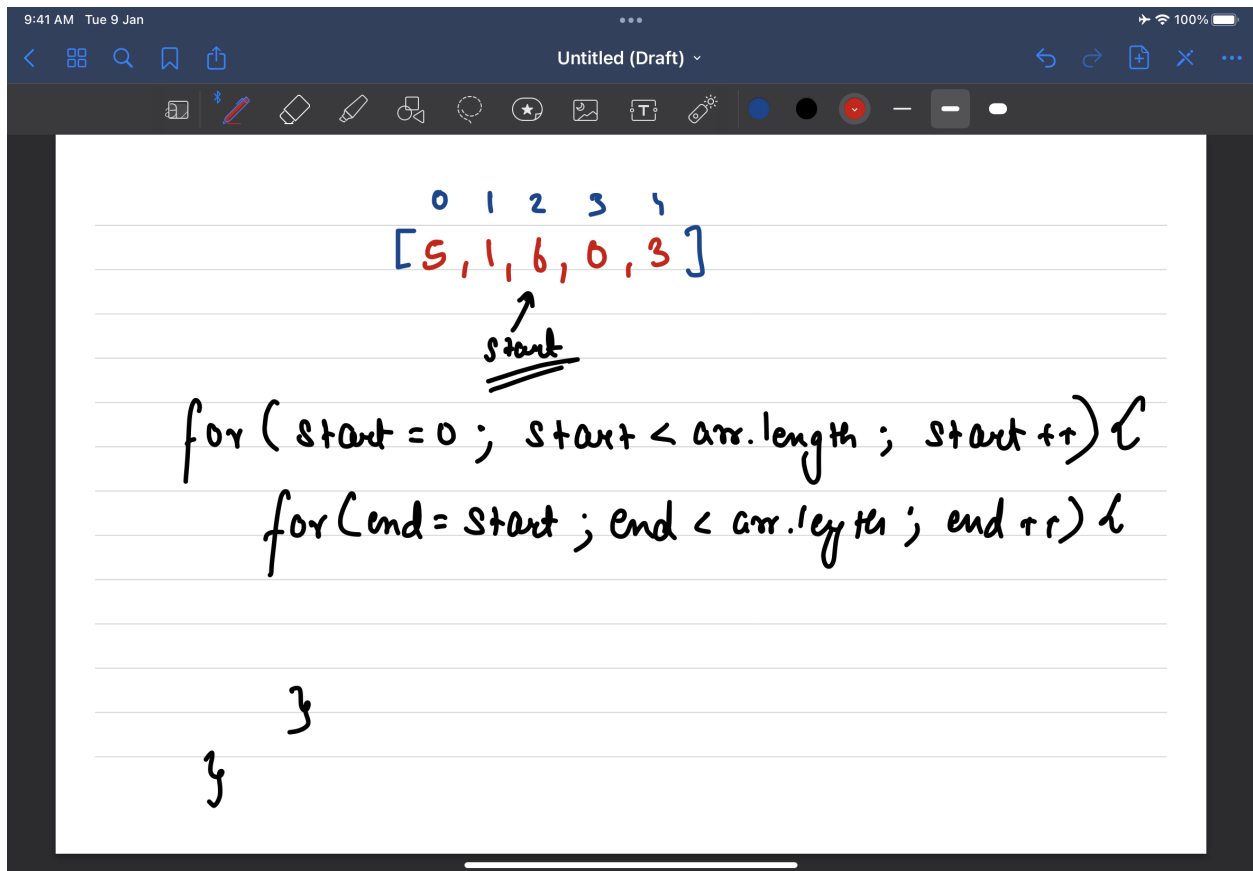 9:41 AM Tue 9 Jan
100%
Untitled (Draft)
T
0 1 2 3 4
[5, 1, 6, 0, 3]
start
for( start = 0 ; start < arr.length ; start ++) {
for(end = start ; end < arr.length ; end ++) {
}
}